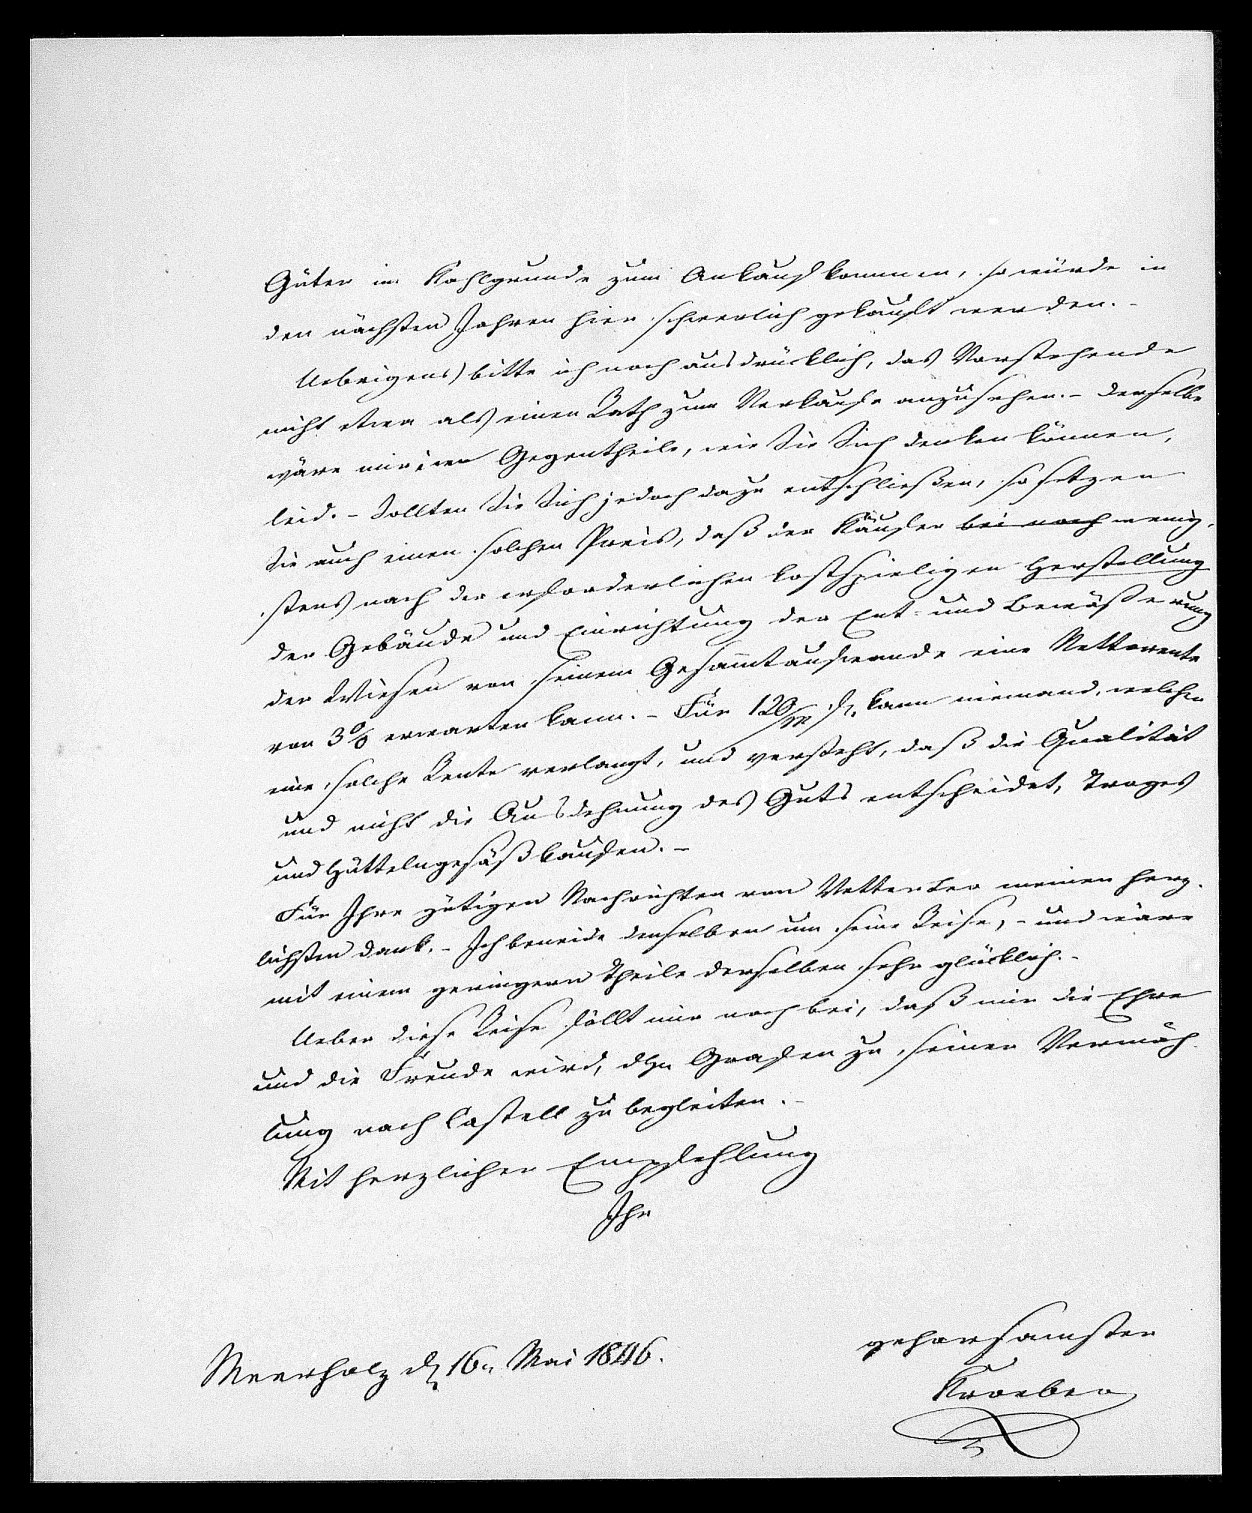 Güter im Kahlgrunde zum Ankauf kommen, so würde in
den nächsten Jahren hier schwerlich gekauft werden. -
Uebrigens bitte ich noch ausdrücklich, das Vorstehende
nicht etwa als einen Rath zum Verkaufe anzusehen. - Derselbe
wäre mir im Gegentheile, wie Sie Sich denken können,
leid. - Sollten Sie Sich jedoch dazu entschließen, so setzen
Sie auch einen solchen Preis, daß der Käufer bei noch wenig-
stens nach der erforderlichen kostspieligen Herstellung
der Gebäude und Einrichtung der Ent- und Bewäßerung
der Wiesen von seinem Gesammtaufwande eine Nettorente
von 3% erwarten kann. - Für 120/m fl. kann niemand, welcher
eine solche Rente verlangt, und versteht, daß die Qualität
und nicht die Ausdehnung des Guts entscheidet, Trages
und Hüttelngesäß kaufen. -
Für Ihre gütigen Nachrichten von Vetter Leo meinen herz-
lichsten Dank. - Ich beneide denselben um seine Reise, - und wäre
mit einem geringern Theile derselben sehr glücklich. -
Ueber diese Reise fällt mir noch bei, daß mir die Ehre
und die Freude wird, den Grafen zu seiner Vermäh-
lung nach Castell zu begleiten. -
Mit herzlicher Empfehlung
Ihr
gehorsamster
Meerholz d. 16n Mai 1846.
Kroeber